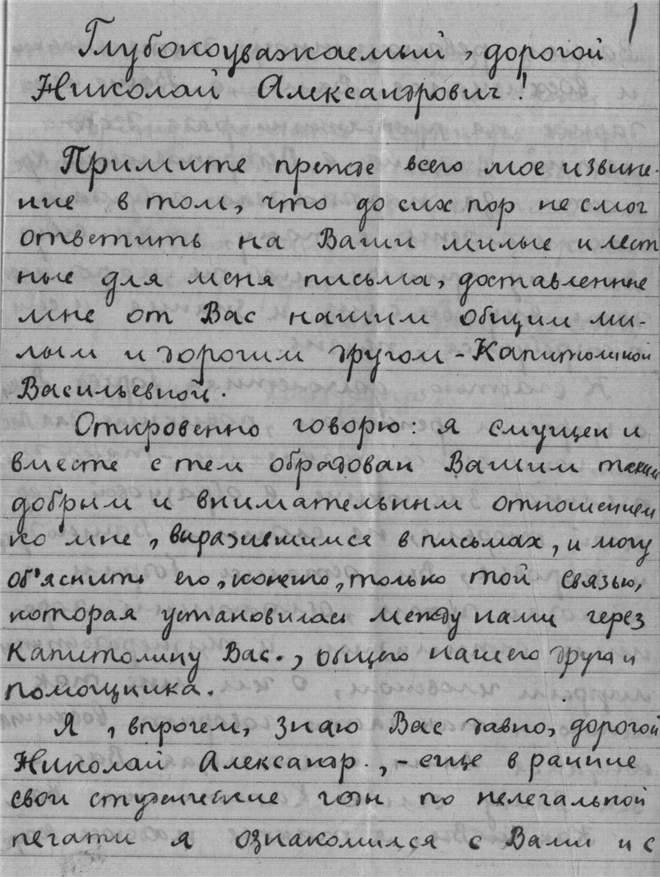 1
Глубокоуважаемый, дорогой
Николай Александрович!
Примите прежде всего мое извине-
ние в том, что до сих пор не смог
ответить на Ваши милые и лест
ные для меня письма, доставленные
мне от Вас нашим общим ми-
лым и дорогим другом - Капитолиной
Васильевной.
Откровенно говорю: я смущен и
вместе с тем обрадован Вашим таким
добрым и внимательным отношением
ко мне, выразившимся в письмах, и могу
об'яснить его, конечно, только той связью,
которая установилась между нами через
Капитолину Вас., общего нашего друга и
помощника.
Я, впрочем, знаю Вас давно, дорогой
Николай Александр., - еще в ранние
свои студенческие годы по нелегальной
печати я ознакомился с Вами и с